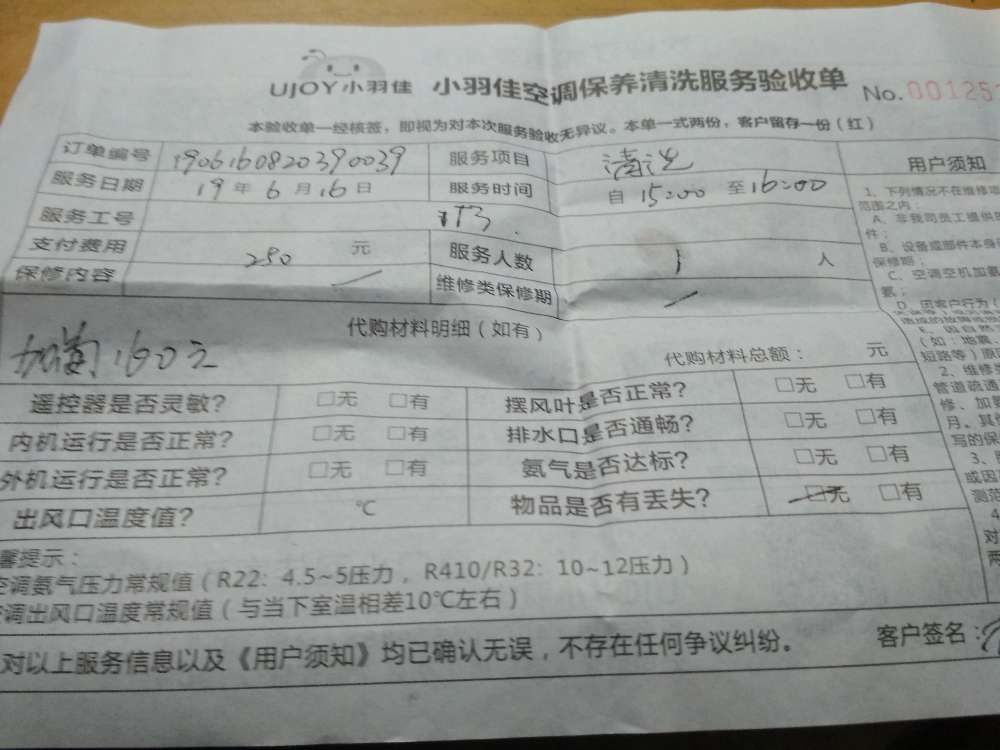 UJOY小羽佳 小羽佳空调保养清洗服务验收单 No.00125
本验收单一经核签，即视为对本次服务验收无异议。本单一式两份，客户留存一份（红）
订单编号 1906160820390039 服务项目 清洗
服务日期 19年6月16日 服务时间 自15:00至16:00
服务工号
支付费用 280元 服务人数 1人
保修内容 维修类保修期
代购材料明细（如有）
加氟160元 代购材料总额： 元
遥控器是否灵敏？ □无 □有 摆风叶是否正常？ □无 □有
内机运行是否正常？ □无 □有 排水口是否通畅？ □无 □有
外机运行是否正常？ □无 □有 氨气是否达标？ □无 □有
出风口温度值？ ℃ 物品是否有丢失？ □无 □有
馨提示：
空调氨气压力常规值（R22：4.5~5压力，R410/R32：10~12压力）
空调出风口温度常规值（与当下室温相差10℃左右）
对以上服务信息以及《用户须知》均已确认无误，不存在任何争议纠纷。 客户签名：
用户须知
1、下列情况不在维修项
范围之内：
A、非我司员工提供的
件；
B、设备或部件本身
保修期；
C、空调空机加氨
氨；
D、因客户行为（
（如：地震、
短路等）原
2、维修类
管道疏通
修、加氨
月。其他
写的保
3、
或因
测范
4
对
两